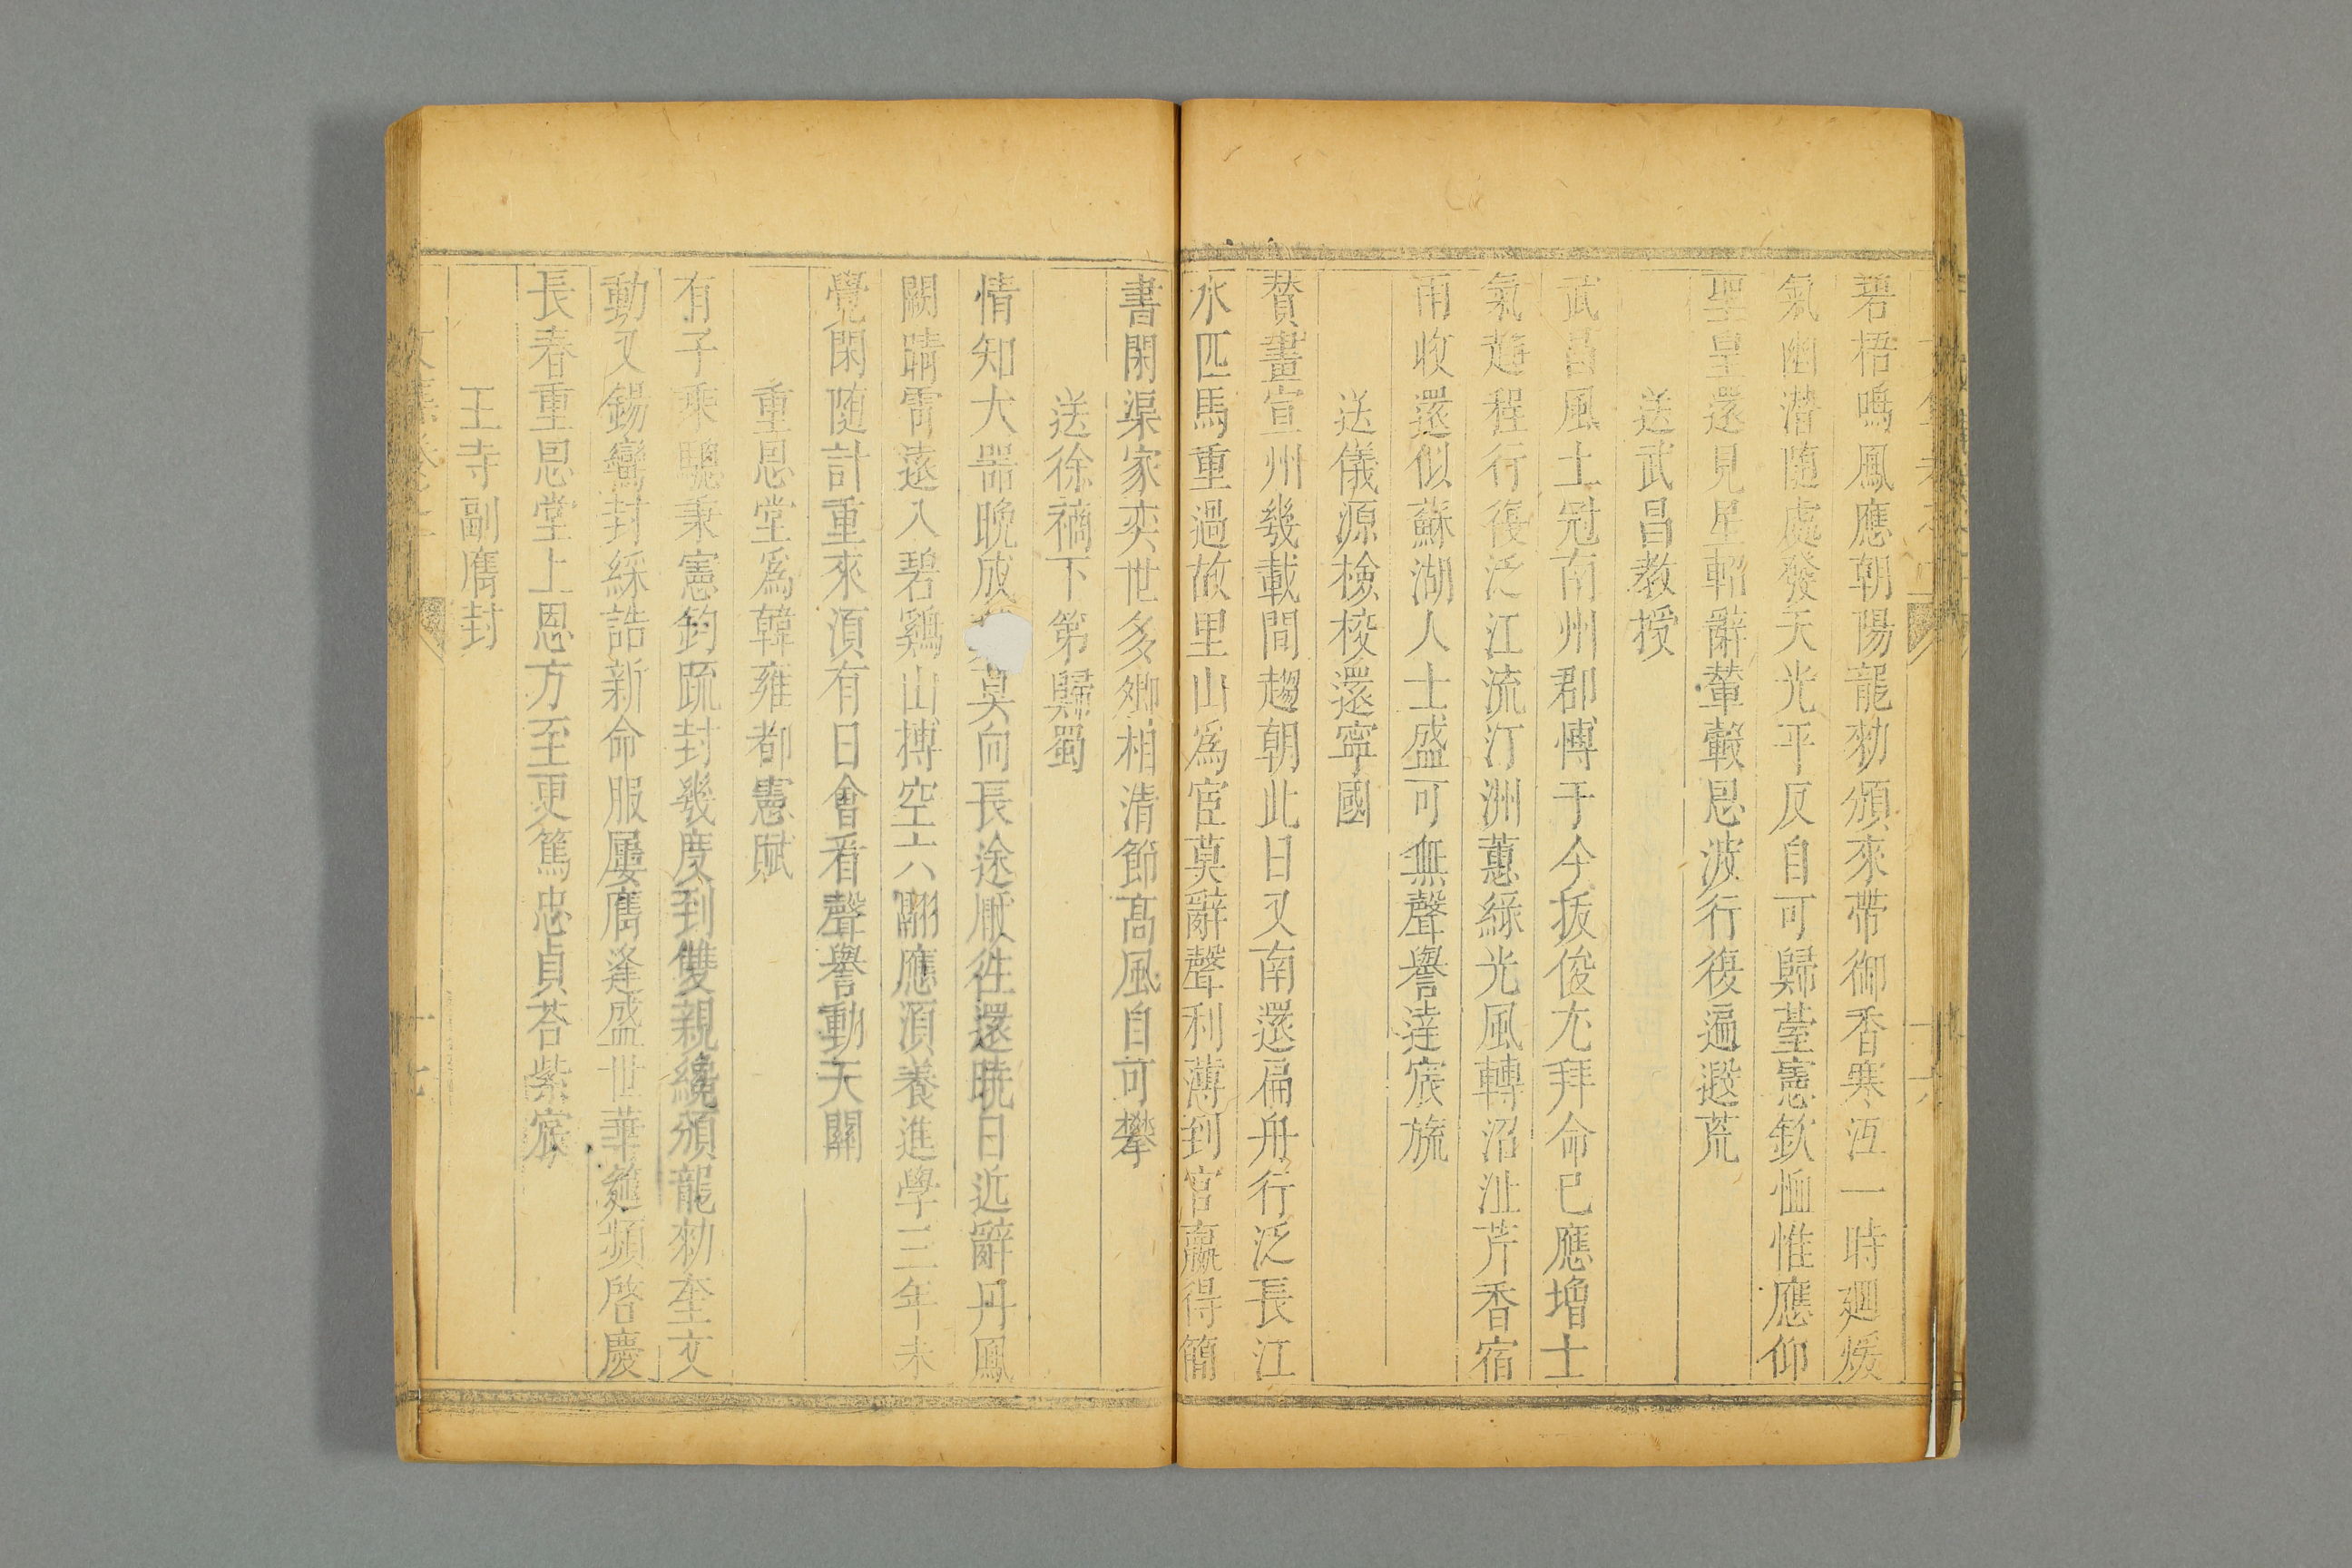 碧梧鳴鳳應朝陽龍勑頒來帶御香寒沍一時廻煖
氣幽潛隨處發天光平反自可歸臺憲欽恤惟應仰
聖皇還見星軺辭輦轂恩波行復遍遐荒
送武昌教授
武昌風土冠南州郡博于今拔俊尤拜命已應增士
氣趍程行復泛江流汀洲蕙綠光風轉沼沚芹香宿
雨收還似蘇湖人士盛可無聲譽達宸旒
送儀源檢校還寧國
賛畫宣州幾載間趨朝此日又南還扁舟行泛長江
水匹馬重過故里山爲宦莫辭聲利薄到官贏得簡
書閑渠家奕世多卿相清節髙風自可攀
送徐禰下第歸蜀
情知大器晩成 莫向長途厭徃還曉日近辭丹鳳
闕晴霄遠入碧鷄山搏空六翮應湏養進學三年未
覺閑随計重來湏有日會看聲譽動天關
重恩堂爲韓雍都憲賦
有子乘驄秉憲鈞䟽封幾度到雙親纔頒龍勑奎文
動又錫鸞封綵誥新命服屢膺逢盛世華筵頻啓慶
長春重恩堂上恩方至更篤忠貞荅紫宸
王寺副膺封